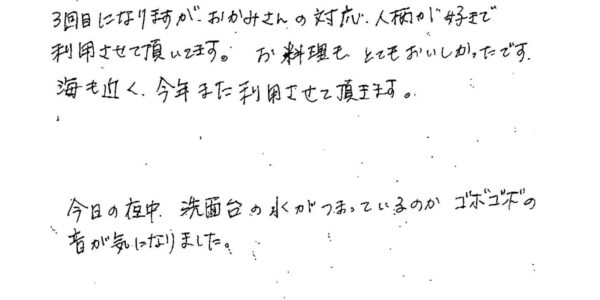 3回目になりますが、おかみさんの対応、人柄が好きで
利用させて頂いてます。 お料理も、とてもおいしかったです。
海も近く、今年また利用させて頂きます。
今日の夜中、洗面台の水がつまっているのか ゴボゴボの
音が気になりました。